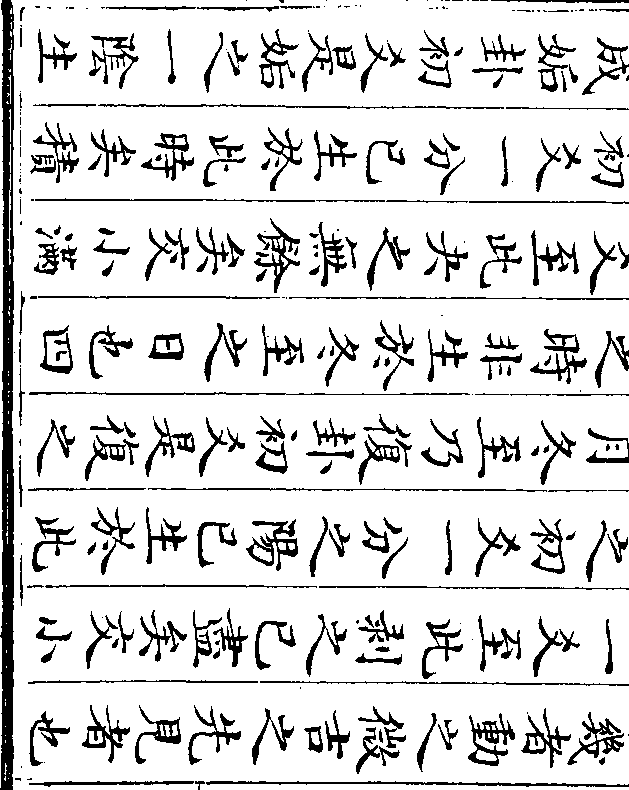 幾者動之微吉之先見者也
一爻至此剥之已盡矣交小
之初爻一分之陽已生於此
月冬至乃復卦初爻是復之
之時非生於冬至之日也四
爻至此夬之無餘矣交小滿
初爻一分已生於此時矣積
成姤卦初爻是姤之一陰生